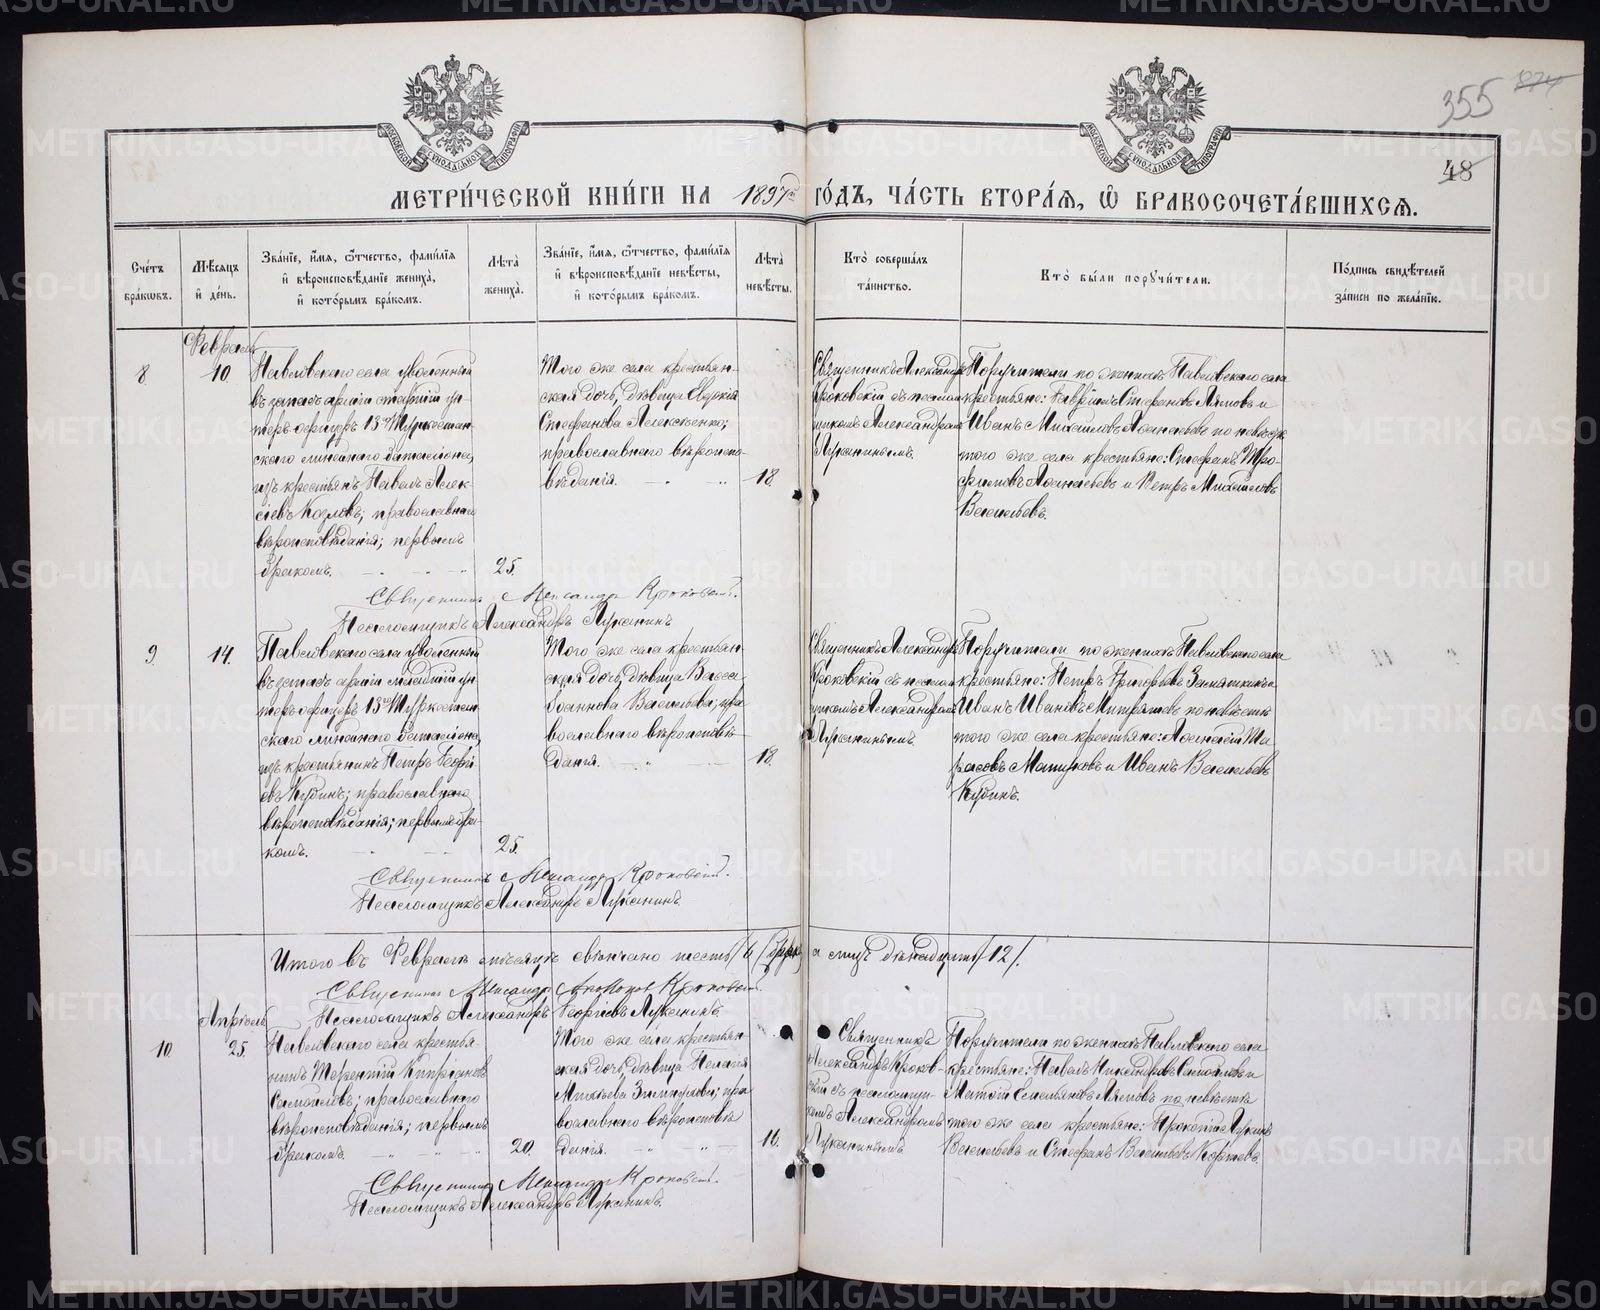 355
48
МЕТРИ́ЧЕСКОЙ КНИ́ГИ НА 1897й ГО́ДЪ, ЧА́СТЬ ВТОРА́Я, Ѡ БРАКОСОЧЕТА́ВШИХСЯ.
Сче́тъ бра́кѡвъ.
Мѣ́сяцъ и҆ де́нь.
Зва́нїе, и҆́мя, ѻ҆́тчество, фами́лїя и҆ вѣроисповѣ́данїе жениха̀, и҆ кото́рымъ бра́комъ.
Лѣ́та жениха̀.
Зва́нїе, и҆́мя, ѻ҆́тчество, фами́лїя и҆ вѣроисповѣ́данїе невѣ́сты, и҆ кото́рымъ бра́комъ.
Лѣ́та невѣ́сты.
Кто̀ соверша́лъ та́инство.
Кто̀ бы́ли поручи́тели.
По́дпись свидѣ́телей за́писи по жела́нїю.
Февраль
8
10
Павловскаго села уволенный
въ запасъ армiи старшiй ун-
теръ-офицеръ 13го Туркестан-
скаго линейнаго баталiона,
изъ крестьянъ Павелъ Алек-
сѣевъ Козловъ; православнаго
вѣроисповѣданiя; первымъ
бракомъ.
25.
Того же села крестьян-
ская дочь, дѣвица Евдокiя
Стефанова Алексѣенко;
православнаго вѣроиспо-
вѣданiя.
18.
Священникъ Александръ
Кроковскiй съ псалом-
щикомъ Александромъ
Лукинымъ.
Поручители по женихѣ Павловскаго села
крестьяне: Гаврiилъ Стефановъ Лямовъ и
Иванъ Михайловъ Аѳанасьевъ по невѣстѣ
того же села крестьяне: Стефанъ Тро-
фимовъ Аѳанасьевъ и Петръ Михайловъ
Васильевъ.
Священникъ Александръ Кроковскiй.
Псаломщикъ Александръ Лукинъ
9.
14.
Павловскаго села уволенный
въ запасъ армiи младшiй ун-
теръ-офицеръ 13го Туркестан-
скаго линейнаго баталiона,
изъ крестьянинъ Петръ Георгi-
евъ Кудинъ; православнаго
вѣроисповѣданiя; первымъ бра-
комъ.
25.
Того же села крестьян-
ская дочь, дѣвица Васса
Iоаннова Васильева; пра-
вославнаго вѣроисповѣ-
данiя.
18.
Священникъ Александръ
Кроковскiй съ псалом-
щикомъ Александромъ
Лукинымъ.
Поручители по женихѣ Павловскаго села
крестьяне: Петръ Григорьевъ
Иванъ Ивановъ по невѣстѣ
того же села крестьяне: Аѳанасiй Та-
расовъ и Иванъ Васильевъ
Кудинъ.
Священникъ Александръ Кроковскiй.
Псаломщикъ Александръ Лукинъ.
Итого въ Февралѣ мѣсяцѣ свѣнчано шесть /6/ браковъ а лицъ двѣнадцать /12/.
Священникъ Александръ Кроковскiй.
Псаломщикъ Александръ Георгiевъ Лукинъ.
Апрѣль
10.
25.
Павловскаго села крестья-
нинъ Терентiй Кипрiановъ
Самойловъ; православнаго
вѣроисповѣданiя; первымъ
бракомъ.
20.
Того же села крестьян-
ская дочь, дѣвица Пелагiя
пра-
вославнаго вѣроисповѣ-
данiя.
16.
Священникъ
Александръ Кроков-
скiй съ псаломщи-
комъ Александромъ
Лукинымъ.
Поручители по женихѣ Павловскаго села
крестьяне: Павелъ Никандровъ Самойловъ и
Матѳiй Емельяновъ Лямовъ по невѣстѣ
того же села крестьяне: Прокопiй Лукинъ
Васильевъ и Стефанъ Васильевъ
Священникъ Александръ Кроковскiй.
Псаломщикъ Александръ Лукинъ.
METRIKI.GASO-URAL.RU